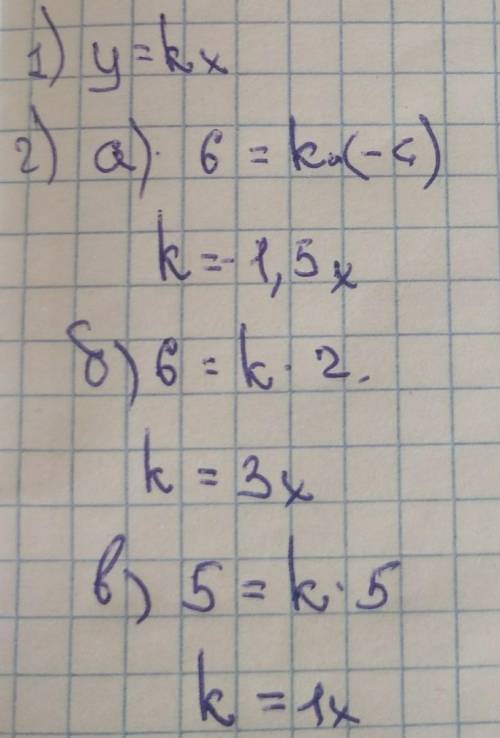 1) y = kx
2) а). 6 = k·(-4)
k = -1,5x
б) 6 = k · 2.
k = 3x
в) 5 = k · 5
k = 1x